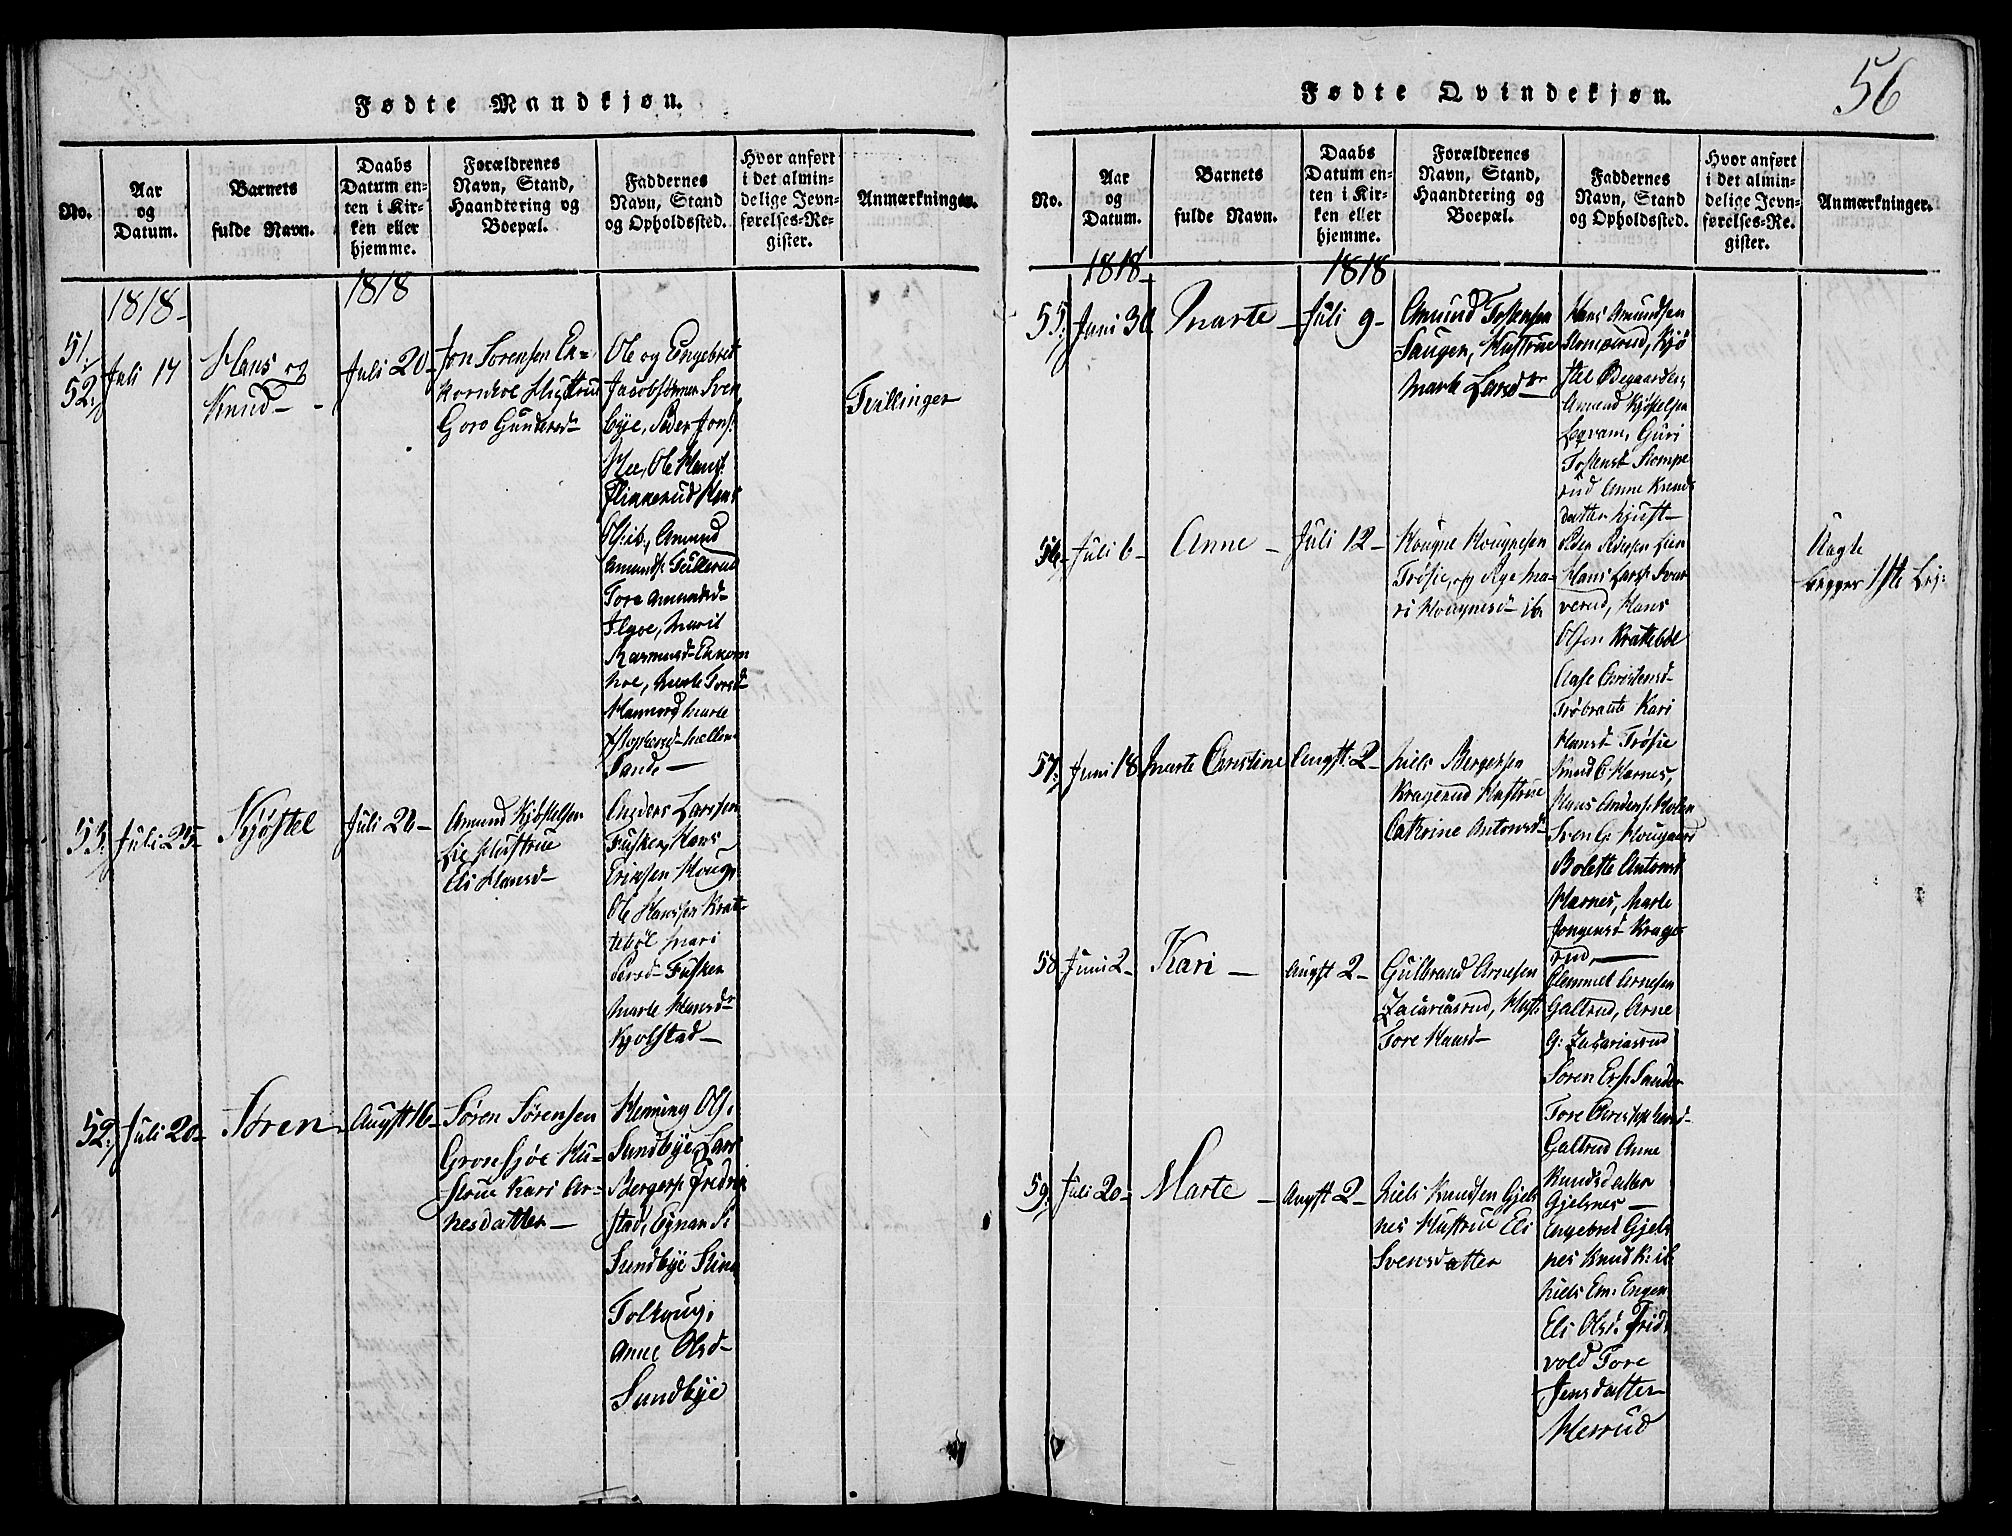 Fødte Mandkjøn.
No.
Aar
og
Datum.
Barnets
fulde Navn.
Daabs
Datum en-
ten i Kir-
ken eller
hjemme.
Forældrenes
Navn, Stand,
Haandtering og
Boepæl.
Faddernes
Navn, Stand
og Opholdssted.
Hvor anført
i det almin-
delige Jevn-
førelses-Re-
gister.
Anmærkninger.
1818-
1818
51.
52.
Juli 14
Hans og
Knud-
Juli 20-
Jon Sørensen
Hustrue
Goro Gundersd-
Ole og Engebret
Jacobsønner Sven
bye, Peder Jons:
Ole Hans:
Amund
Tore Amundsd-
Marit
Rasmusd-
Marte Torsd-
Marte
Sande-
Tvillinger
53.
Juli 25-
Kjøstel
Juli 26-
Amund Kjøstelsen
Lie Hustrue
Eli Hansd-
Anders Larssen
Fusker, Hans
Eriksen Houg,
Ole Hanssen Krat-
tebøl Mari
Persd- Fusker
Marte Hansdr
Kjolstad-
52.
Juli 20-
Søren
Augst 16-
Søren Sørensen
Gronsjøe Hu-
strue Kari Ar-
nesdatter-
Henning Ols.
Sundbye, Lars
Bergers: Fredrik
stad, Egnar S:
Sundbye Stina
Tolhoug,
Anne Olsd-
Sundbye
Fødte Qvindekjøn.
56
No.
Aar
og
Datum.
Barnets
fulde Navn.
Daabs
Datum en-
ten i Kir-
ken eller
hjemme.
Forældrenes
Navn, Stand,
Haandtering og
Boepæl.
Faddernes
Navn, Stand
og Opholdssted.
Hvor anført
i det almin-
delige Jevn-
førelses-Re-
gister.
Anmærkninger.
1818-
1818
55.
Juni 30
Marte-
Juli 9-
Amund Tostensen
Haugen, Hustrue
Marte Larsdr-
Hans Amundsen
Stomperud, Kjø
stel Ødegaarden,
Amund Kjøstelsen
Guri
Tostensd- Stompe
rud Anne Knuds
datter
56-
Juli 6-
Anne-
Juli 12-
Hougne Hougnesen
Trøsie, og Pige Ma-
ri Hougnesd- ib.
Peder Pedersen Lien
Hans Larss: Svar
verud, Hans
Olsen Krattebøl
Aase Christensd-
Trøbraate Kari
Hansd- Trøsie
begges 1ste Lei:
57.
Juni 18
Marte Christine
Augst 2-
Niels Bergersen
Kragerud Hustrue
Cathrine Antonsd-
Knud C Harnes,
Hans Anders: Holen
Sven C: Hougaard
Bolette Antonsd
Harnes, Marte
Jørgensd- Krage-
rud,-
58.
Juni 2-
Kari-
Augst 2-
Gulbrand Arnesen
Zacariasrud, Hust:
Tore Hansd-
Clemmet Arnesen
Galtrud, Arne
G: Zachariasrud
Søren Ers: Sander
Tore Christophersd-
Galtrud Anne
Knudsdatter
Gjelsnes-
59.
Juli 20-
Marte-
Augst 2-
Niels Knudsen Gjels
nes Hustrue Eli
Svensdatter
Engebret Gjels
nes Knud K: ib
Niels Em: Engen
Eli Olsd. Frid-
vold Tore
Jensdatter
Herrud